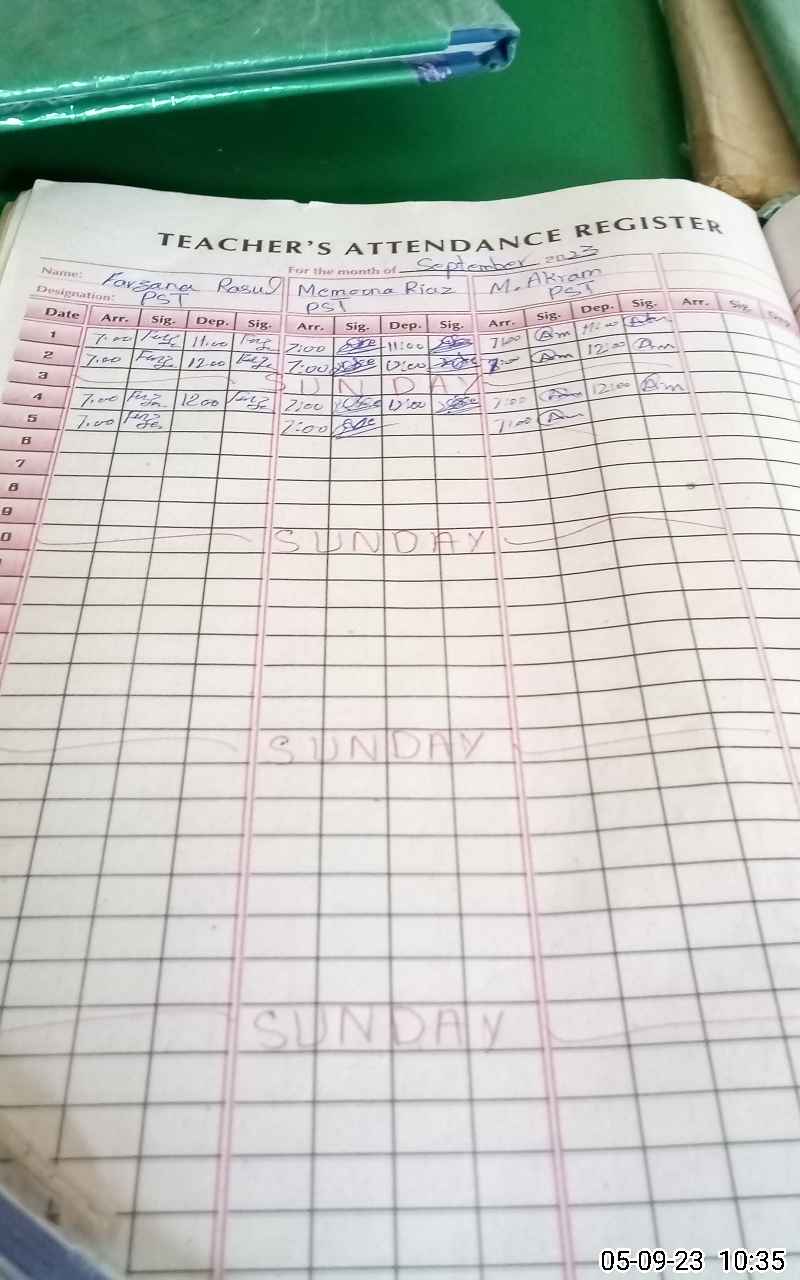 TEACHER'S ATTENDANCE REGISTER
Name: Farzana Rasul For the month of September 2023
Memoona Riaz M. Akram
Designation: PST PST PST
Date Arr. Sig. Dep. Sig. Arr. Sig. Dep. Sig. Arr. Sig. Dep. Sig. Arr. Sig. Dep
1 7.00 11.00 7:00 11:00 7:00 11:00
2 7.00 12.00 7:00 12:00 7:00 12:00
3 SUNDAY
4 7.00 12.00 7:00 12:00 7:00 12:00
5 7.00 7:00 7:00
6
7
8
9
0 SUNDAY
SUNDAY
SUNDAY
05-09-23 10:35